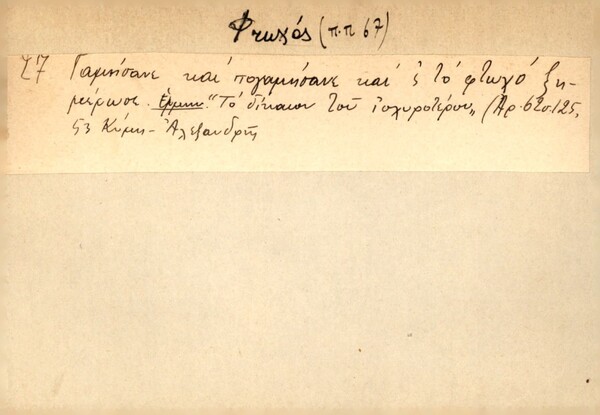 Φτωχός (π.π 67)
27 Γαμήσανε καί πογαμήσανε καί ς τό φτωχό ξη-
μέρωσε. Ἑρμην. "Τό δίκαιον τοῦ ἰσχυροτέρου" (Ἀρ. 6 σ. 125,
53 Κύμη - Ἀλεξανδρῆς